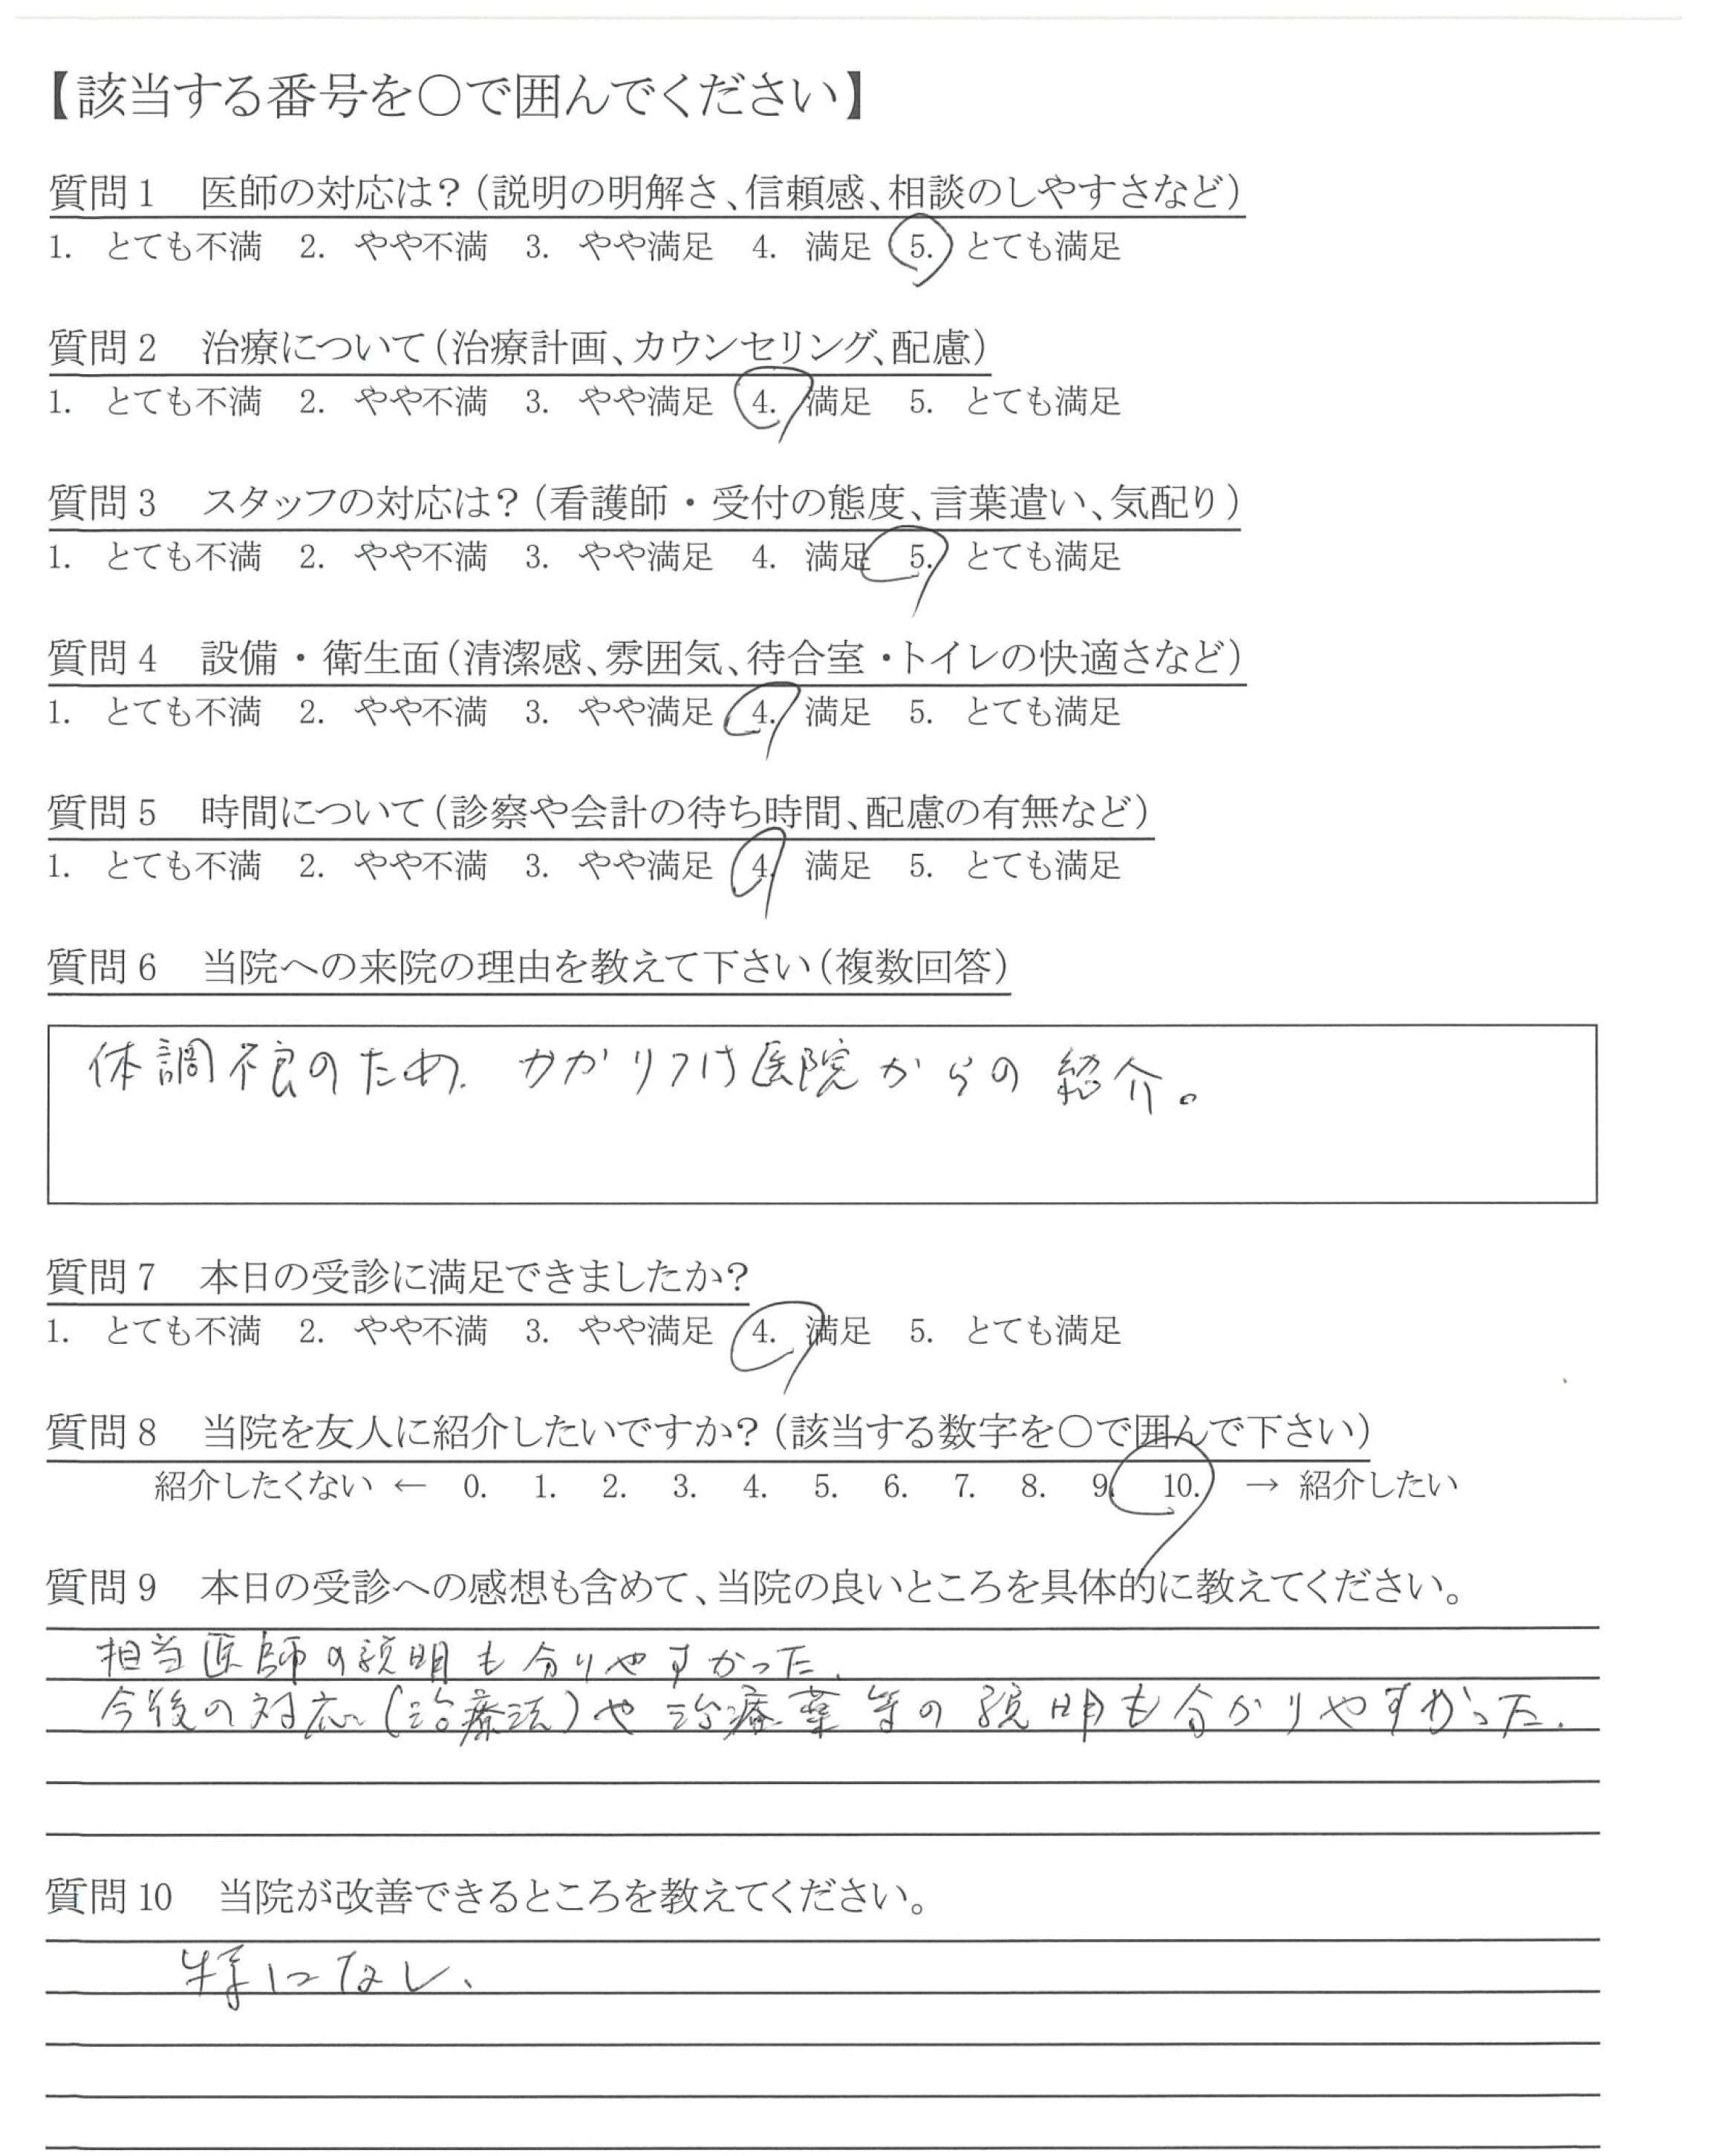 【該当する番号を○で囲んでください】
質問1 医師の対応は？（説明の明解さ、信頼感、相談のしやすさなど）
1. とても不満 2. やや不満 3. やや満足 4. 満足 5. とても満足
質問2 治療について（治療計画、カウンセリング、配慮）
1. とても不満 2. やや不満 3. やや満足 4. 満足 5. とても満足
質問3 スタッフの対応は？（看護師・受付の態度、言葉遣い、気配り）
1. とても不満 2. やや不満 3. やや満足 4. 満足 5. とても満足
質問4 設備・衛生面（清潔感、雰囲気、待合室・トイレの快適さなど）
1. とても不満 2. やや不満 3. やや満足 4. 満足 5. とても満足
質問5 時間について（診察や会計の待ち時間、配慮の有無など）
1. とても不満 2. やや不満 3. やや満足 4. 満足 5. とても満足
質問6 当院への来院の理由を教えて下さい（複数回答）
体調不良のため、かかりつけ医院からの紹介。
質問7 本日の受診に満足できましたか？
1. とても不満 2. やや不満 3. やや満足 4. 満足 5. とても満足
質問8 当院を友人に紹介したいですか？（該当する数字を○で囲んで下さい）
紹介したくない ← 0. 1. 2. 3. 4. 5. 6. 7. 8. 9. 10. → 紹介したい
質問9 本日の受診への感想も含めて、当院の良いところを具体的に教えてください。
担当医師の説明も分りやすかった、
今後の対応（治療法）や治療薬等の説明も分かりやすかった.
質問10 当院が改善できるところを教えてください。
特になし、